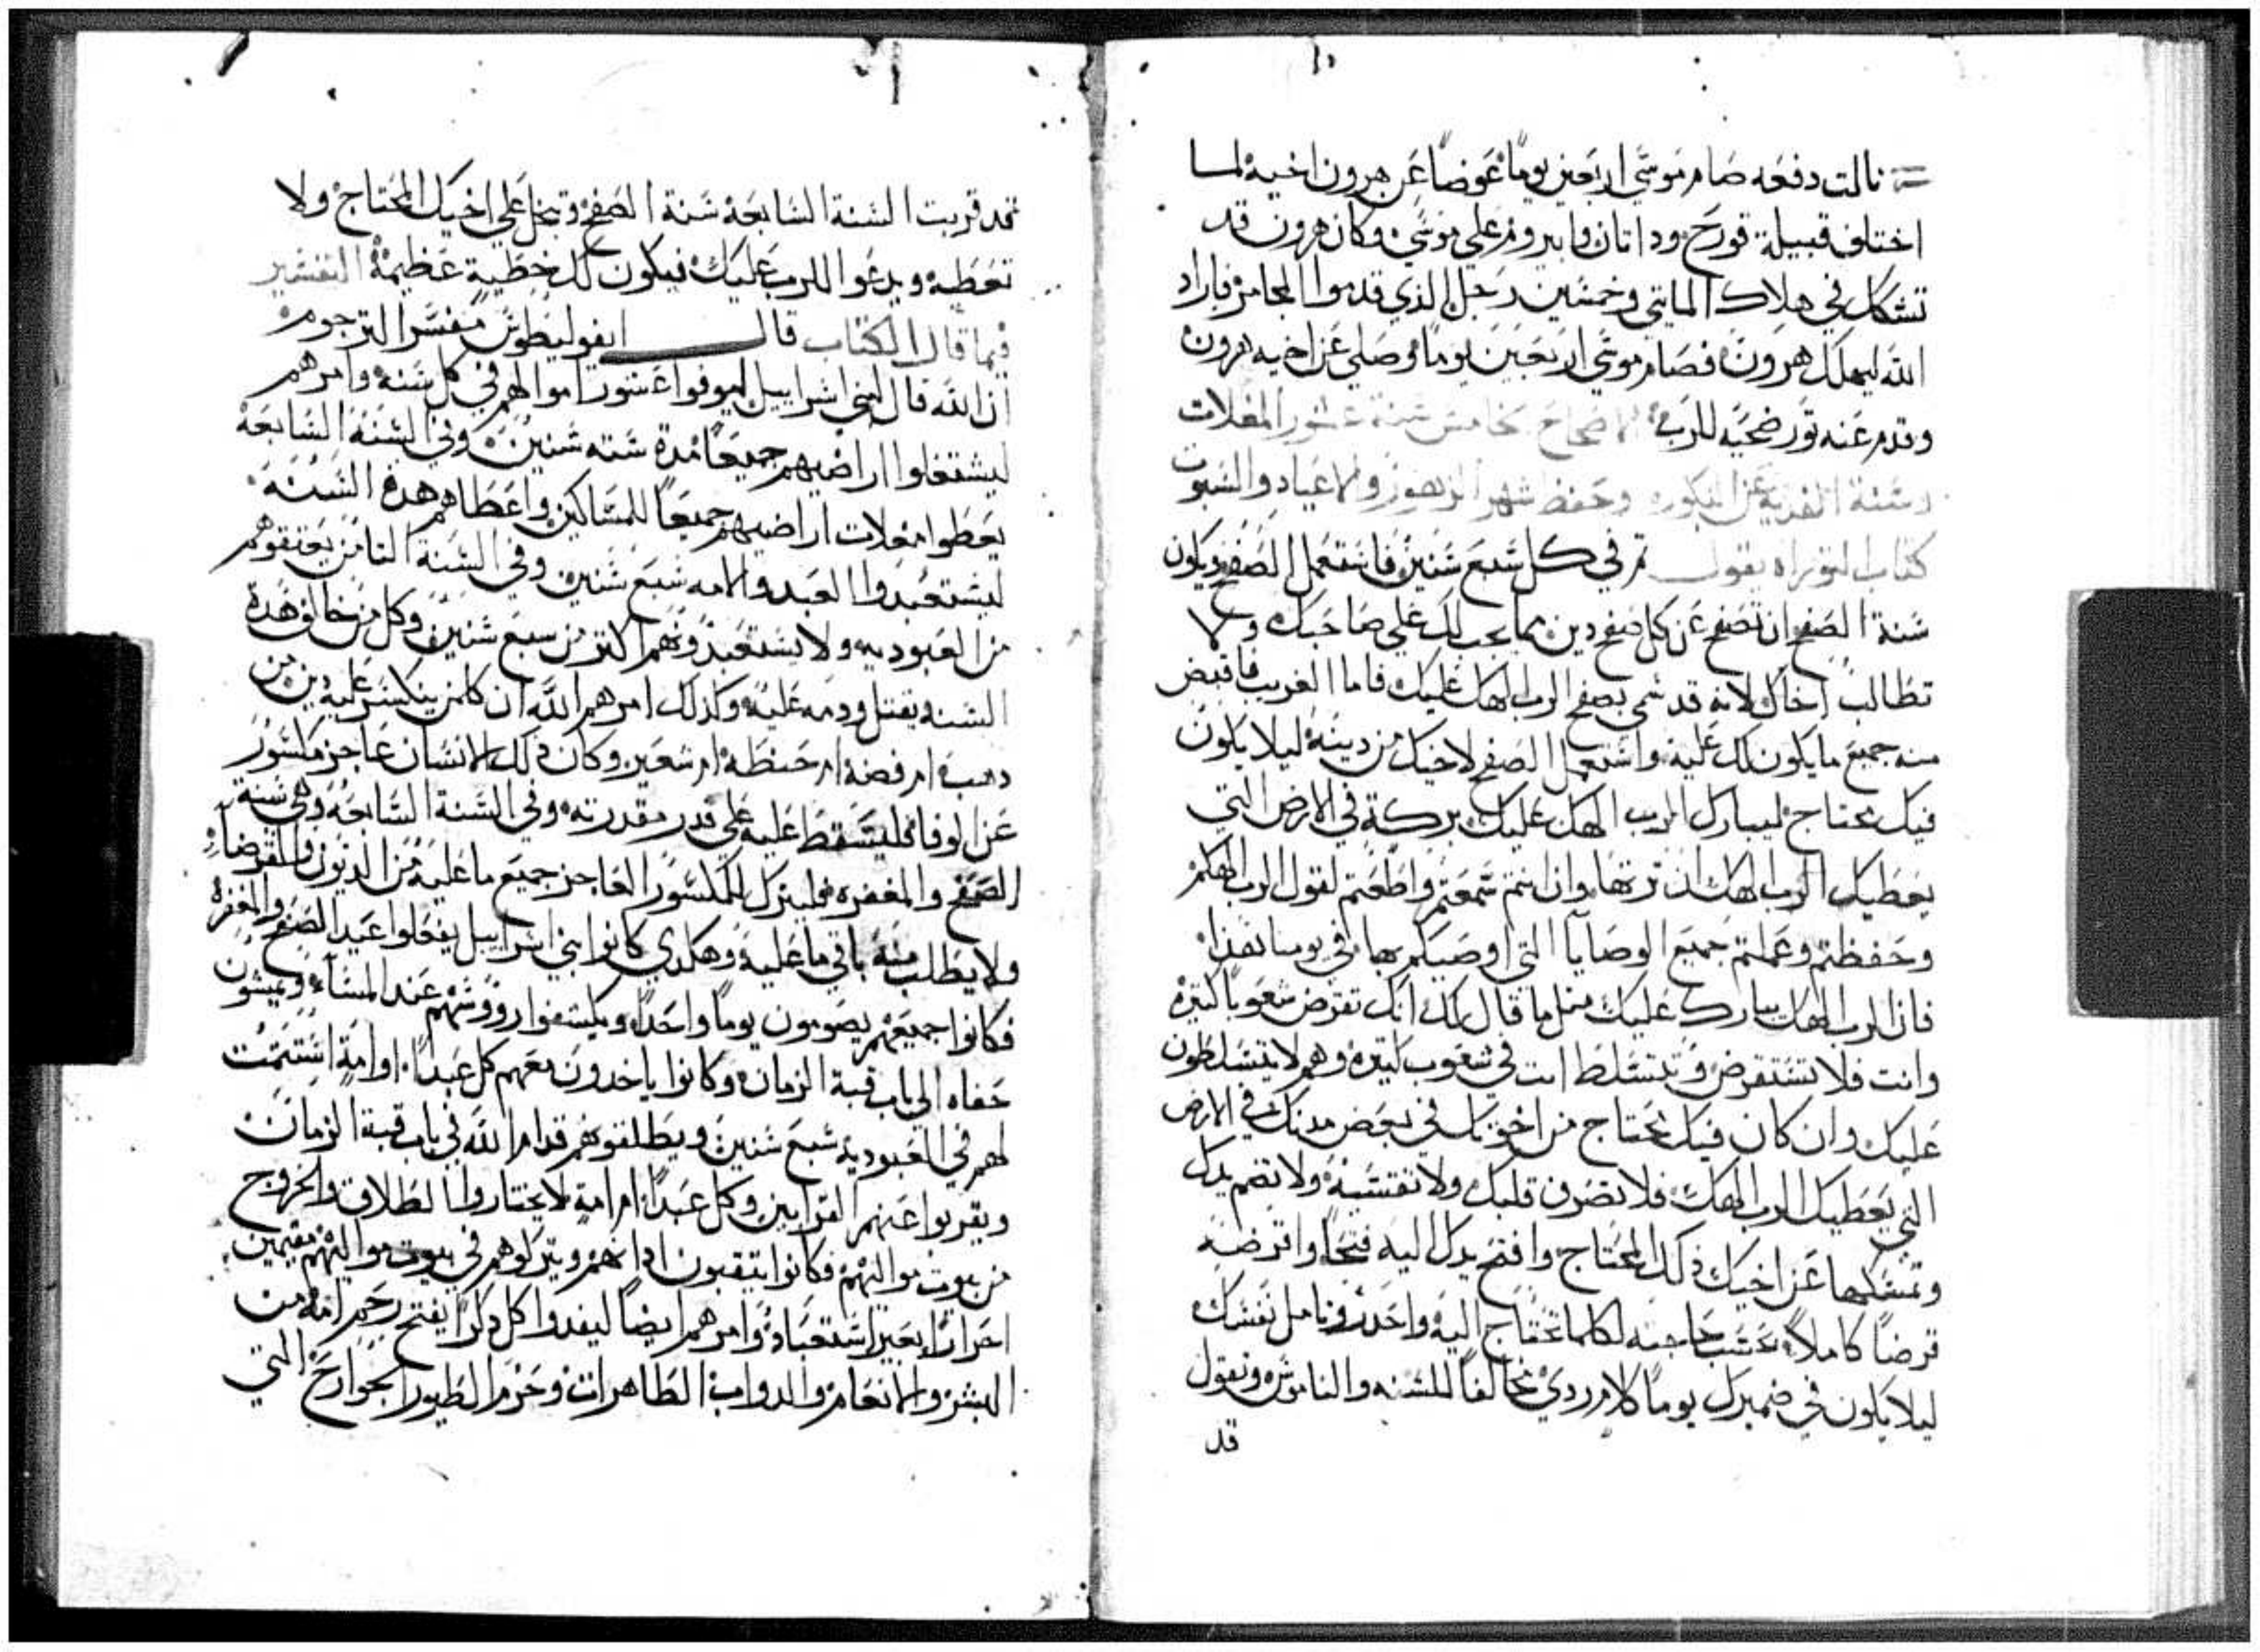 تالت دفعه صام موسي اربعين يوماً عوضاً عن هرون اخيه لما
اختلف قبيلة قورح وداتان وابيروم علي موسي وكان هرون قد
تشكك في هلاك المايتي وخمسين رجل الذي قدموا المجامر فاراد
الله ليهلك هرون فصام موسي اربعين يوماً وصلي عن اخيه هرون
وقدم عنه تور ضحيه للرب الاصحاح الخامس سنة عشور المغلات
وسنة الفديه عن البكوره وحفظ شهر الزهور والاعياد والسبوت
كتاب التوراه يقول ثم في كل سبع سنين فاستعمل الصفح ويكون
سنة الصفح ان تصفح عن كل صفح دين مما يجب لك علي صاحبك ولا
تطالب اخاك لانه قد سمي بصفح الرب الهك عليك فاما الغريب فاقبض
منه جميع ما يكون لك عليه واستعمل الصفح لاخيك من دينه ليلا يكون
فيك محتاج ليبارك الرب الهك عليك بركة في الارض التي
يعطيك الرب الهك ان ترتها وان انتم سمعتم واطعتم لقول الرب الهكم
وحفظتم وعملتم جميع الوصايا التي اوصيكم بها في يومنا هذا
فان الرب الهك يبارك عليك متل ما قال لك انك تقرض شعوباً كتيره
وانت فلا تستقرض وتتسلط انت في شعوب كتيره وهم لا يتسلطون
عليك وان كان فيك محتاج من اخوتك في بعض مدنك في الارض
التي يعطيك الرب الهك فلا تصرف قلبك ولا تقسيه ولا تضم يدك
وتمسكها عن اخيك ذلك المحتاج وافتح يدك اليه فتحاً واقرضه
قرضاً كاملاً حسب حاجته لكلما تحتاج اليه واحدر وتامل نفسك
ليلا يكون في ضميرك يوماً كلام ردي مخالفاً للسنه والناموس وتقول
قد
قد قربت السنة السابعة سنة الصفح وتبخل علي اخيك المحتاج ولا
تعطه ويدعوا للرب عليك فيكون لك خطية عظيمة التفسير
فيما قال الكتاب قال ابفوليطوس مفسر الترجوم
ان الله قال لبني اسراييل ليوفوا عشور اموالهم في كل سنه وامرهم
ليشتغلوا اراضيهم جميعاً مدة سته سنين وفي السنة السابعة
يعطوا مغلات اراضيهم جميعاً للمساكين واعطاهم هده السنه
ليستعبدوا العبد والامه سبع سنين وفي السنة التامن يعتقوهم
من العبوديه ولا يستعبدونهم اكتر من سبع سنين وكل من خالف هدة
السنه ويقتل ودمه عليه وكدلك امرهم الله ان كلمن ينكسر عليه دين من
دهب ام فضه ام حنطه ام شعير وكان دلك الانسان عاجز مكسور
عن الوفا فليتسقط عليه علي قدر مقدرته وفي السنة السابعه وهي سنة
الصفح والمغفره فليترك للمكسور العاجز جميع ما عليه من الديون والقرضا
ولا يطلب منه باقي ما عليه وهكدي كانوا بني اسراييل يفعلوا عيد الصفح والمغفره
فكانوا جميعهم يصومون يوماً واحداً ويكشفوا رووسهم عند المساء ويمشون
حفاه الي باب قبة الزمان وكانوا ياخدون معهم كل عبداً اوامة استتمت
لهم في العبوديه سبع سنين ويطلقوهم قدام الله في باب قبة الزمان
ويقربوا عنهم القرابين وكل عبداً ام امة لا يختاروا الطلاق والخروج
من بيوت مواليهم فكانوا يتقبون ادانهم ويتركوهم في بيوت مواليهم مقيمين
احراراً بغير استعباد وامرهم ايضاً ليفدوا كل دكراً يفتح رحم امه من
البشر والانعام والدواب الطاهرات وحرم الطيور الجوارح التي